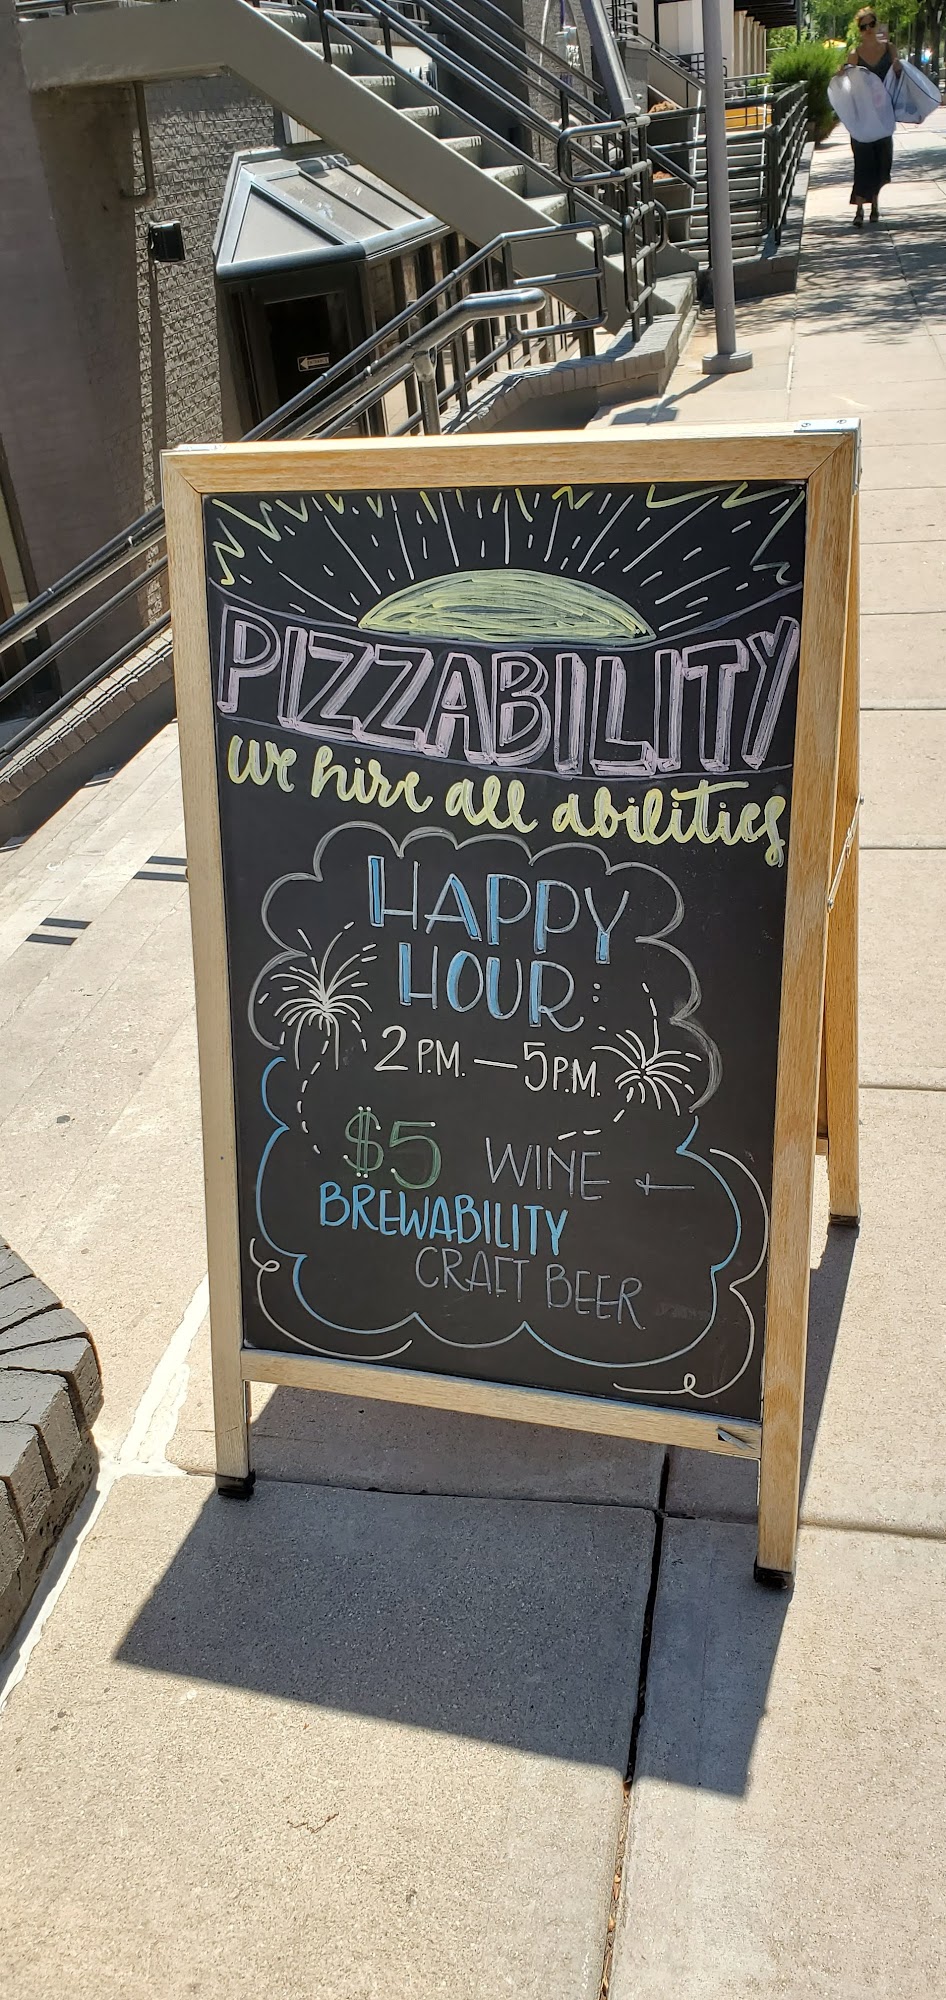 PIZZABILITY
we hire all abilities
HAPPY
HOUR:
2 P.M. — 5 P.M.
$5 WINE +
BREWABILITY
CRAFT BEER